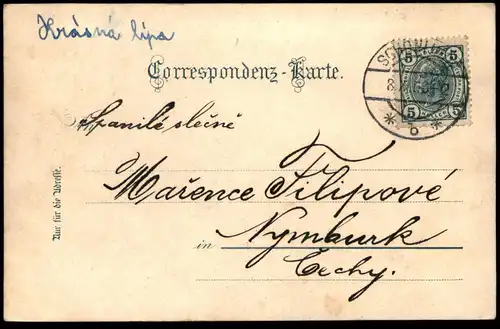 Krásná lípa
Correspondenz-Karte.
5 5
5 5
Spanilé slečně
Mařence Filipové
in Nymburk
Čechy.
Nur für die Adresse.